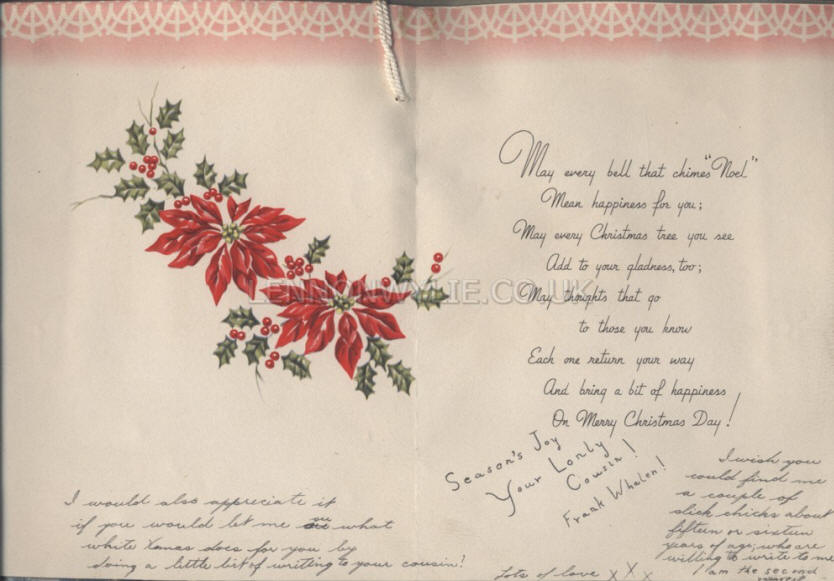 May every bell that chimes "Noel"
Mean happiness for you;
May every Christmas tree you see
Add to your gladness, too;
May thoughts that go
to those you know
Each one return your way
And bring a bit of happiness
On Merry Christmas Day!
LENNONWYLIE.CO.UK
Season's Joy
Your Lonly
Cousin!
Frank Whalen!
I would also appreciate it
if you would let me see what
white Xmas does for you by
doing a little bit of writing to your cousin!
Lots of love X X X
I wish you
could find me
a couple of
slick chicks about
fifteen or sixteen
years of age; who are
willing to write to me
I am the second